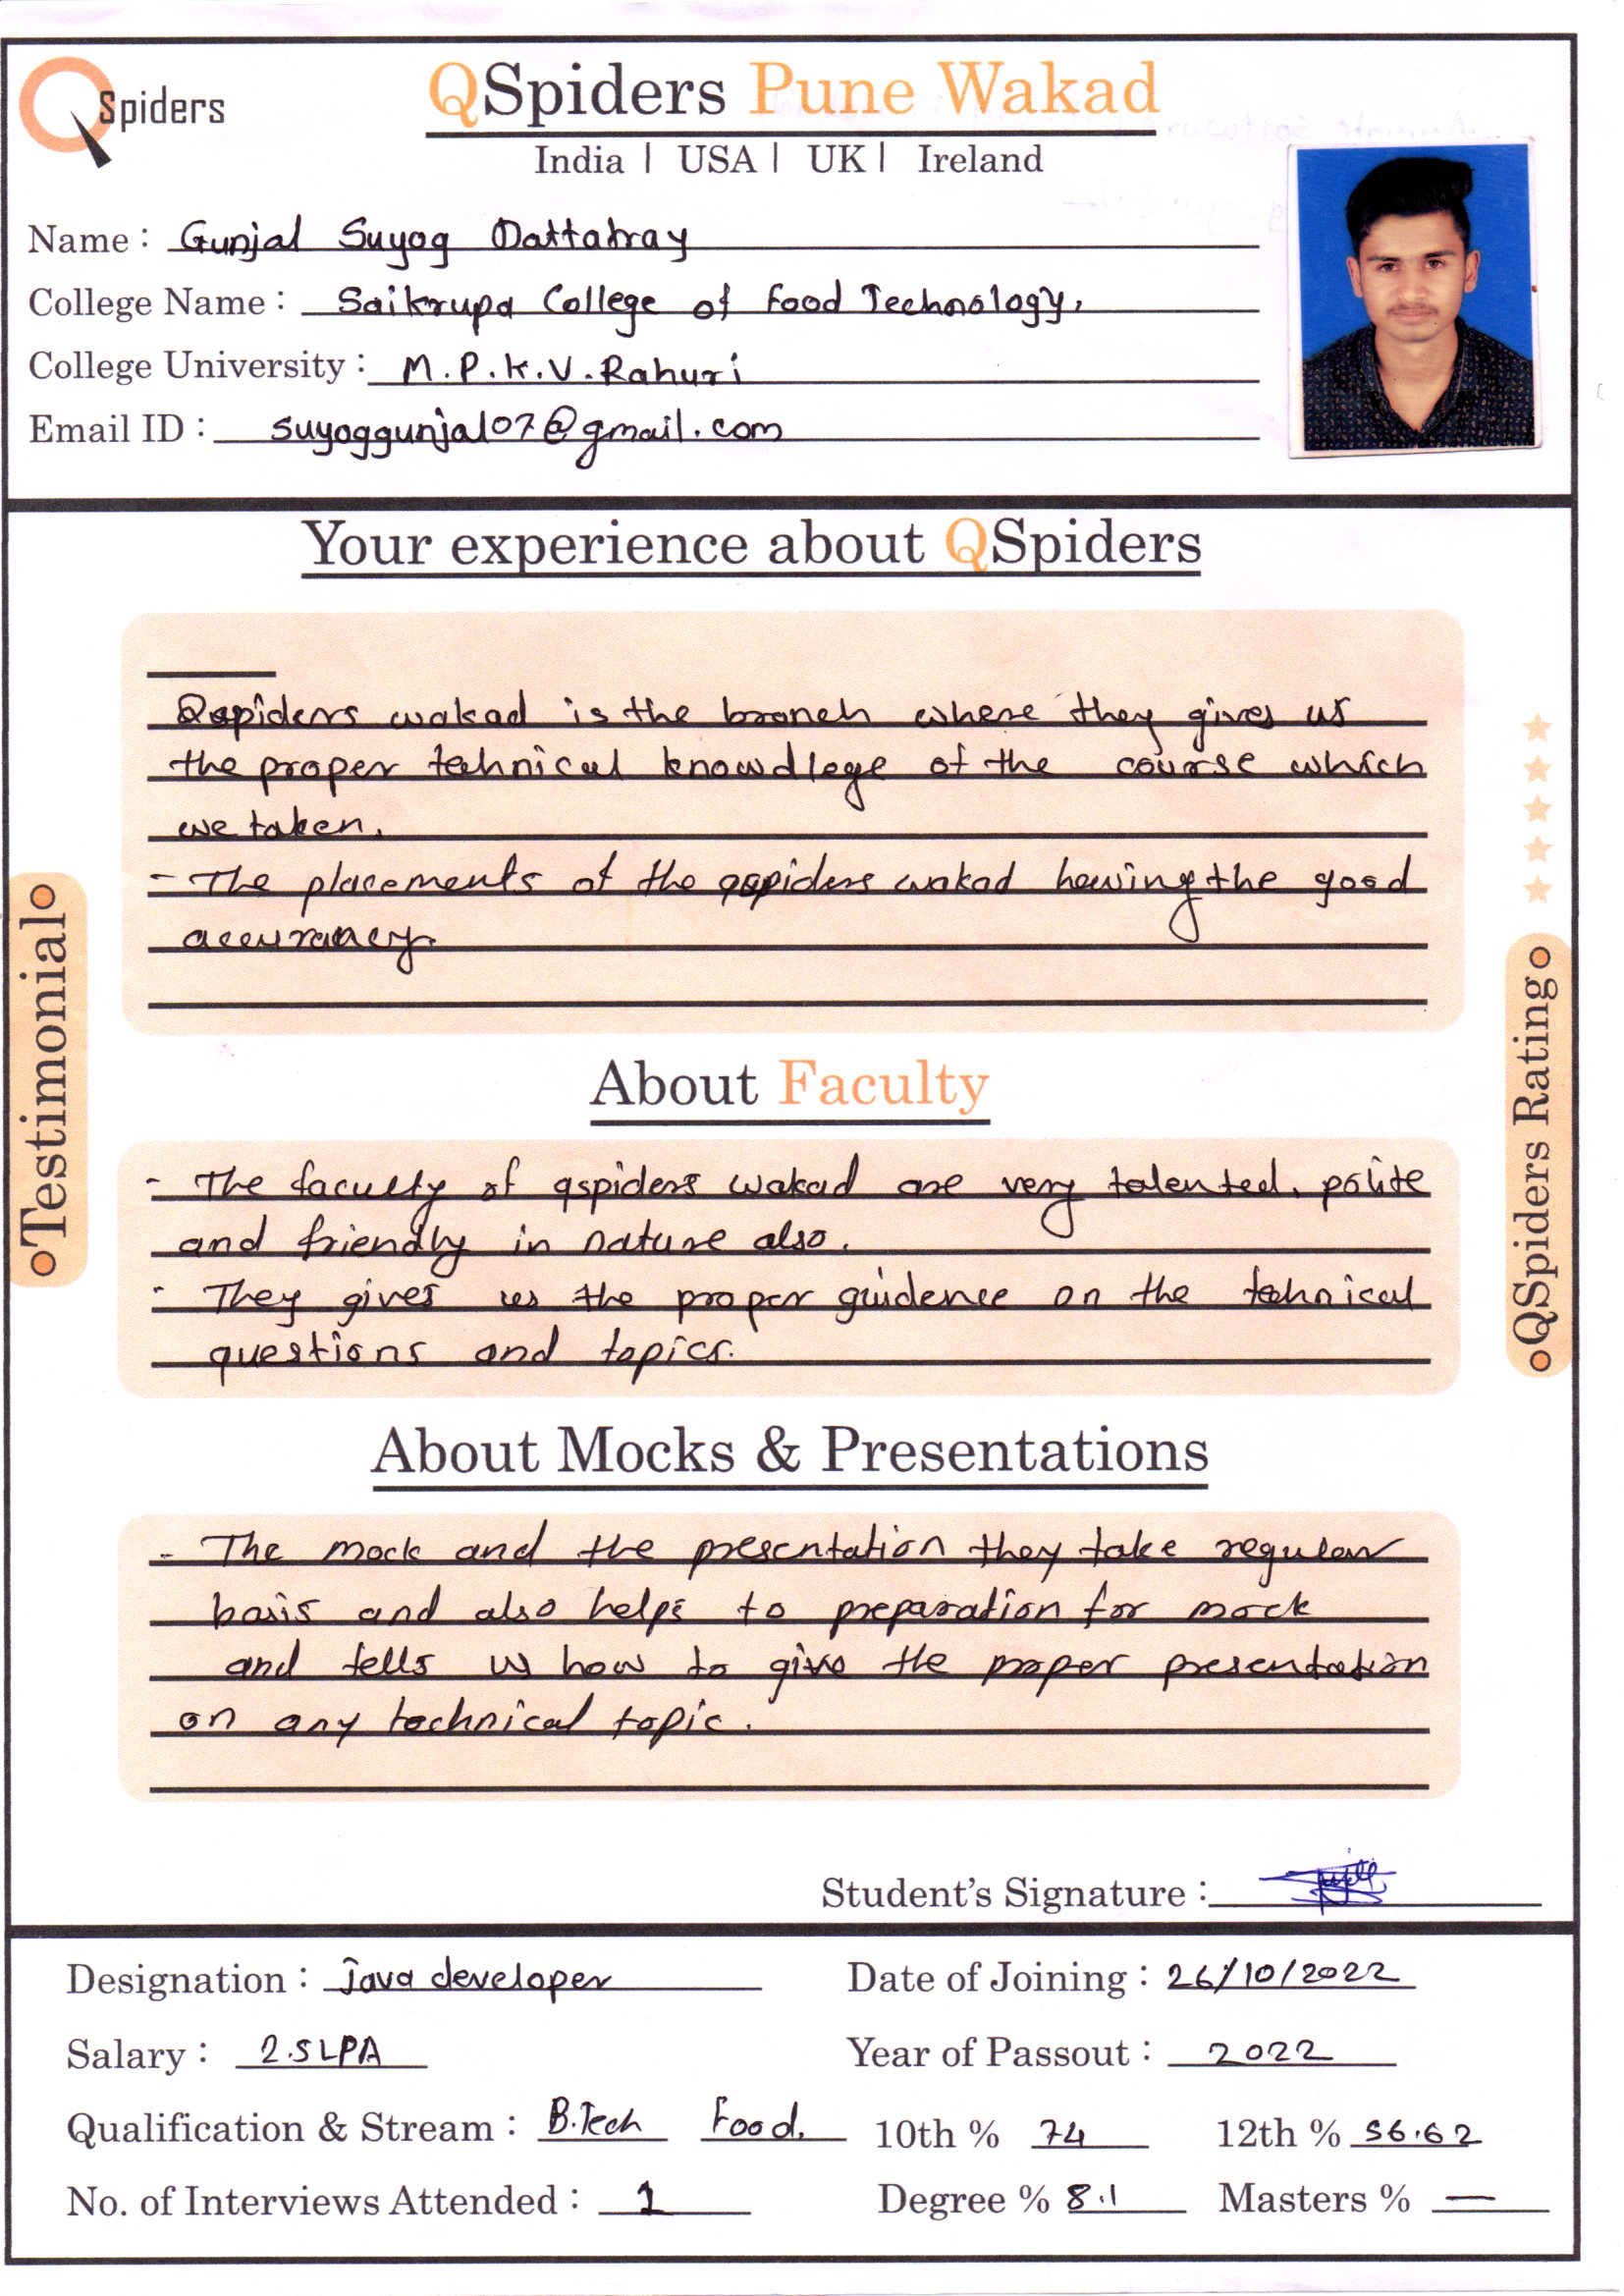 Spiders
QSpiders Pune Wakad
India | USA | UK | Ireland
Name : Gunjal Suyog Dattatray
College Name : Saikrupa College of Food Technology,
College University : M.P.K.V. Rahuri
Email ID : suyoggunjal07@gmail.com
Your experience about QSpiders
Qspiders wakad is the branch where they gives us
the proper technical knowdlege of the course which
we taken.
- The placements of the qspiders wakad hawing the good
accurancy.
About Faculty
- The faculty of qspiders wakad are very talented, polite
and friendly in nature also.
- They gives us the proper guidence on the tehnical
questions and topics.
About Mocks & Presentations
- The mock and the presentation they take regular
basis and also helps to preparation for mock
and tells us how to give the proper presentation
on any technical topic.
Testimonial
QSpiders Rating
Student's Signature :
Designation : Java developer Date of Joining : 26/10/2022
Salary : 2.5LPA Year of Passout : 2022
Qualification & Stream : B.Tech Food. 10th % 74 12th % 56.62
No. of Interviews Attended : 1 Degree % 8.1 Masters % —